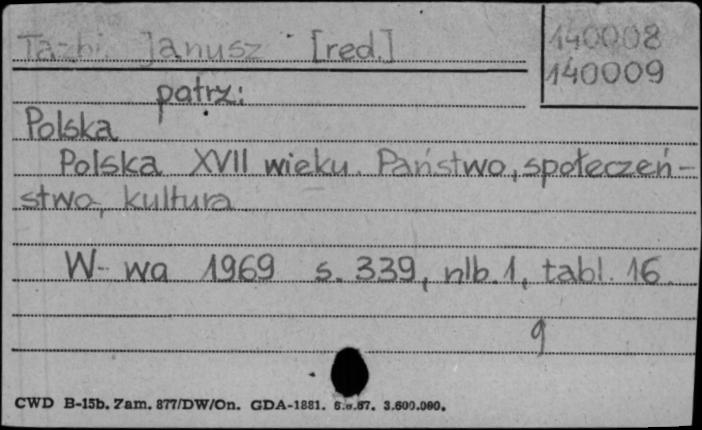 Tazbi. Janusz [red.]
140008
140009
patrz:
Polska
Polska XVII wieku. Państwo, społeczeń-
stwo, kultura
W-wa 1969 s. 339, nlb. 1, tabl. 16.
9
CWD B-15b. Zam. 877/DW/On. GDA-1881. 3.600.000.